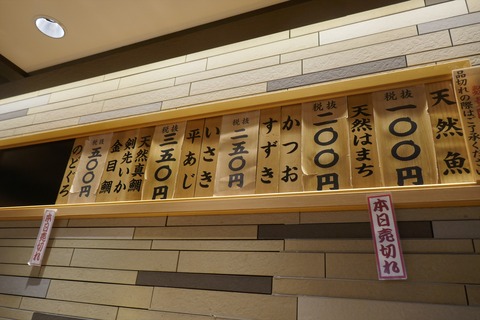 品切れの際はご了承ください
天然魚
税抜
一〇〇円
天然はまち
税抜
二〇〇円
かつお
すずき
税抜
二五〇円
いさき
平あじ
税抜
三五〇円
天然真鯛
剣先いか
金目鯛
税抜
五〇〇円
のどぐろ
本日売切れ
本日売切れ